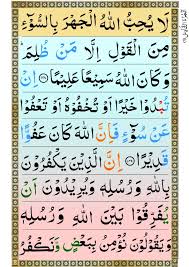 لَا يُحِبُّ اللهُ الْجَهْرَ بِالسُّوْٓءِ
مِنَ الْقَوْلِ اِلَّا مَنْ ظُلِمَ ؕ
وَكَانَ اللهُ سَمِيْعًا عَلِيْمًا اِنْ
تُبْدُوْا خَيْرًا اَوْ تُخْفُوْهُ اَوْ تَعْفُوْا
عَنْ سُوْٓءٍ فَاِنَّ اللهَ كَانَ عَفُوًّا
قَدِيْرًا اِنَّ الَّذِيْنَ يَكْفُرُوْنَ
بِاللهِ وَرُسُلِهٖ وَيُرِيْدُوْنَ اَنْ
يُّفَرِّقُوْا بَيْنَ اللهِ وَرُسُلِهٖ
وَيَقُوْلُوْنَ نُؤْمِنُ بِبَعْضٍ وَّنَكْفُرُ